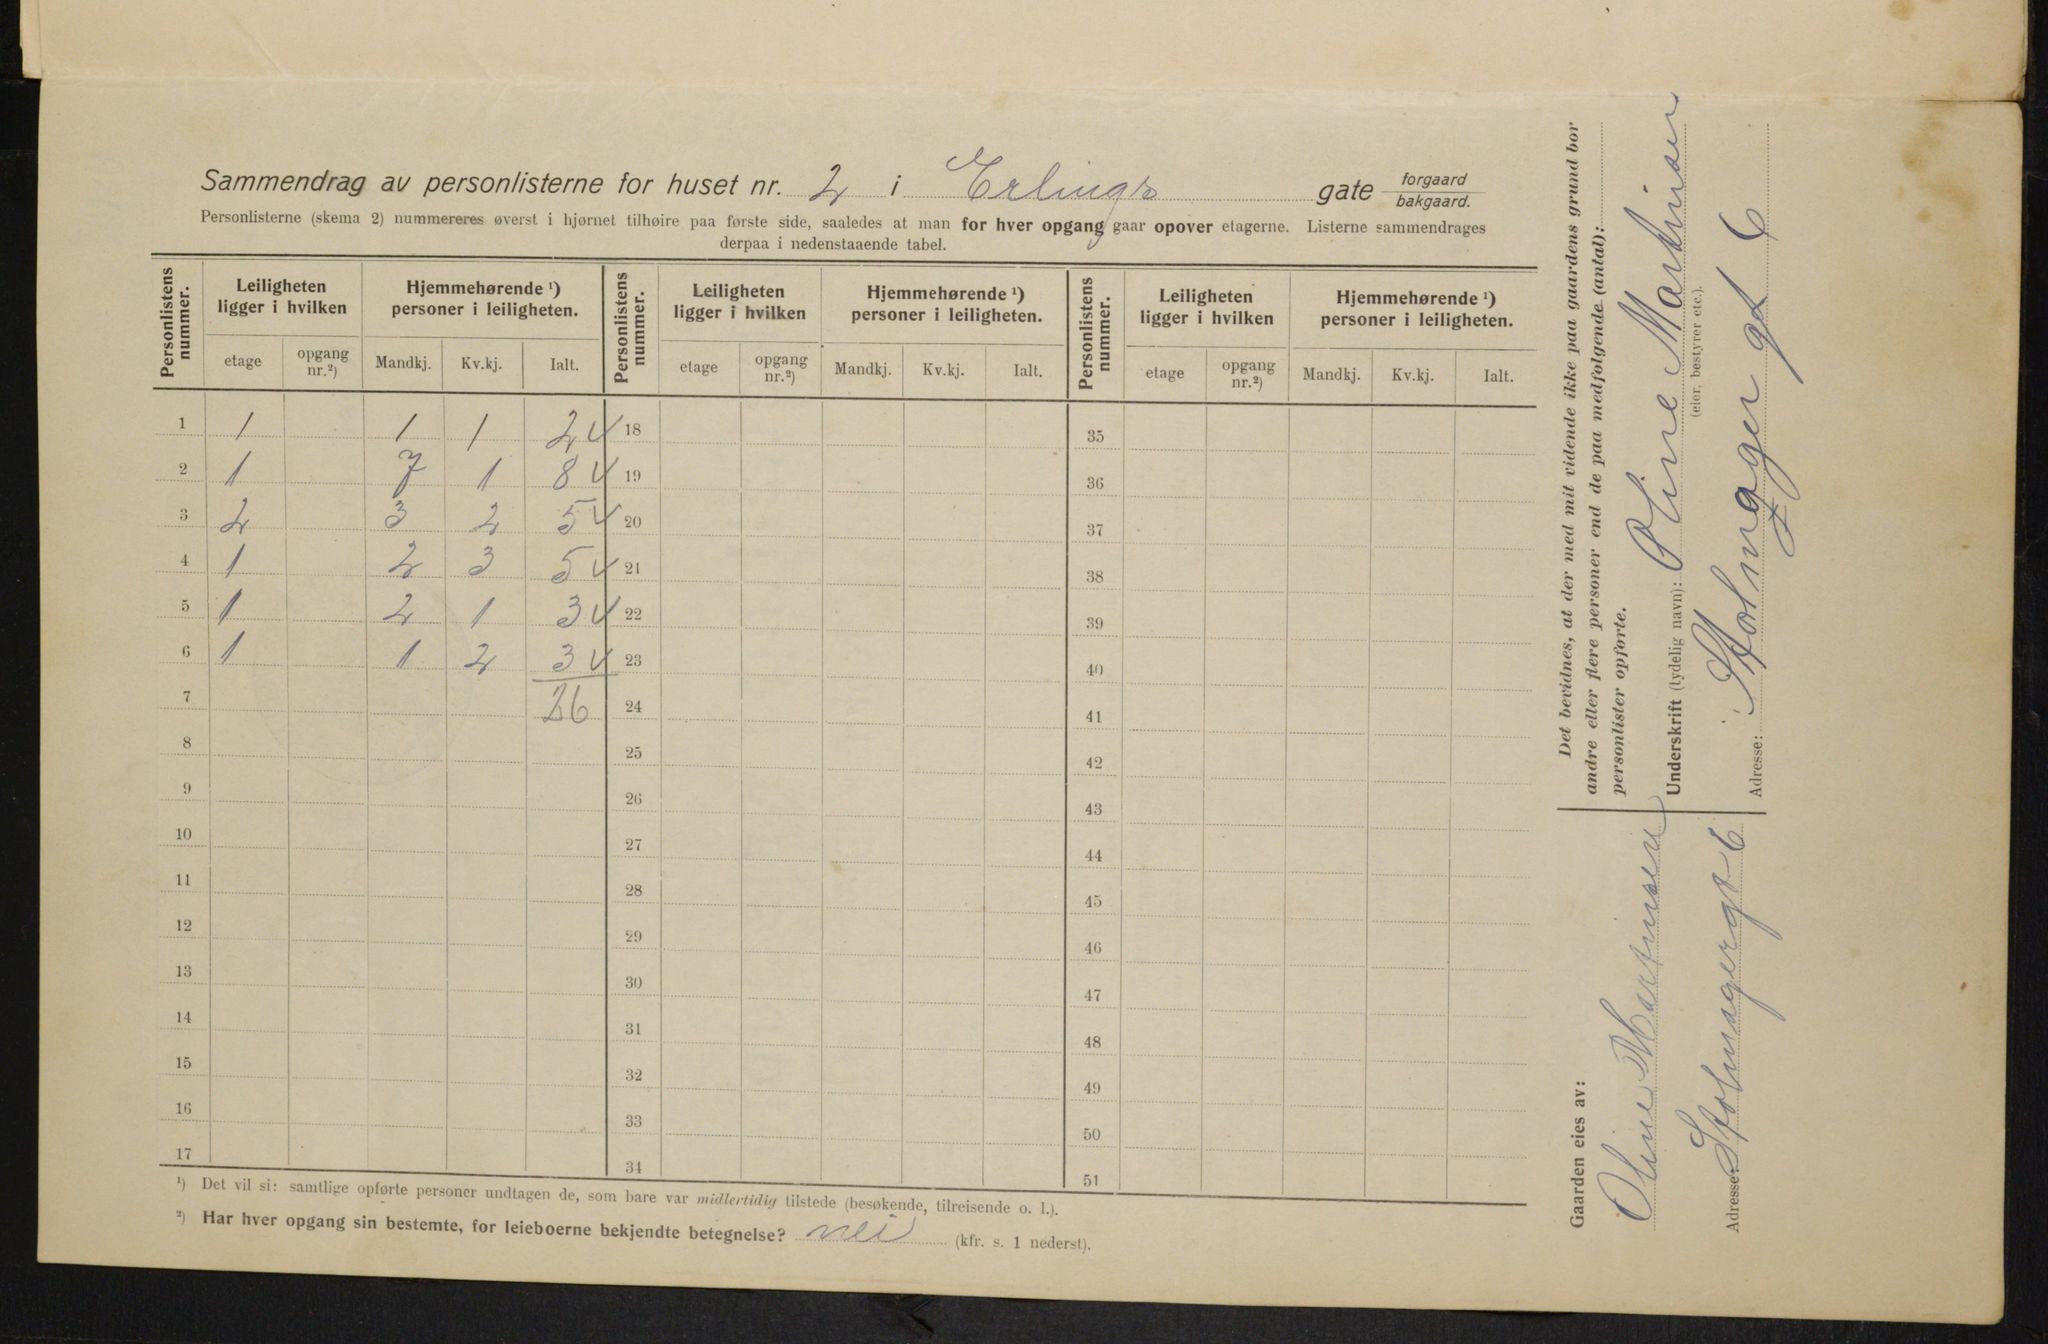 Sammendrag av personlisterne for huset nr. 2 i Erlings gate forgaard
bakgaard.
Personlisterne (skema 2) nummereres øverst i hjørnet tilhøire paa første side, saaledes at man for hver opgang gaar opover etagerne. Listerne sammendrages
derpaa i nedenstaaende tabel.
Personlistens nummer. Leiligheten ligger i hvilken Hjemmehørende ¹) personer i leiligheten. Personlistens nummer. Leiligheten ligger i hvilken Hjemmehørende ¹) personer i leiligheten. Personlistens nummer. Leiligheten ligger i hvilken Hjemmehørende ¹) personer i leiligheten.
etage opgang nr.²) Mandkj. Kv.kj. Ialt. etage opgang nr.²) Mandkj. Kv.kj. Ialt. etage opgang nr.²) Mandkj. Kv.kj. Ialt.
1 1 1 1 2 18 35
2 1 7 1 8 19 36
3 2 3 2 5 20 37
4 1 2 3 5 21 38
5 1 2 1 3 22 39
6 1 1 2 3 23 40
7 26 24 41
8 25 42
9 26 43
10 27 44
11 28 45
12 29 46
13 30 47
14 31 48
15 32 49
16 33 50
17 34 51
¹) Det vil si: samtlige opførte personer undtagen de, som bare var midlertidig tilstede (besøkende, tilreisende o. l.).
²) Har hver opgang sin bestemte, for leieboerne bekjendte betegnelse? nei (kfr. s. 1 nederst).
Det bevidnes, at der med mit vidende ikke paa gaardens grund bor
andre eller flere personer end de paa medfølgende (antal):
personlister opførte.
Underskrift (tydelig navn): Oline Martinsen
(eier, bestyrer etc.).
Adresse: Stolmager gt 6
Gaarden eies av:
Oline Martinsen
Adresse: Stolmagergt 6